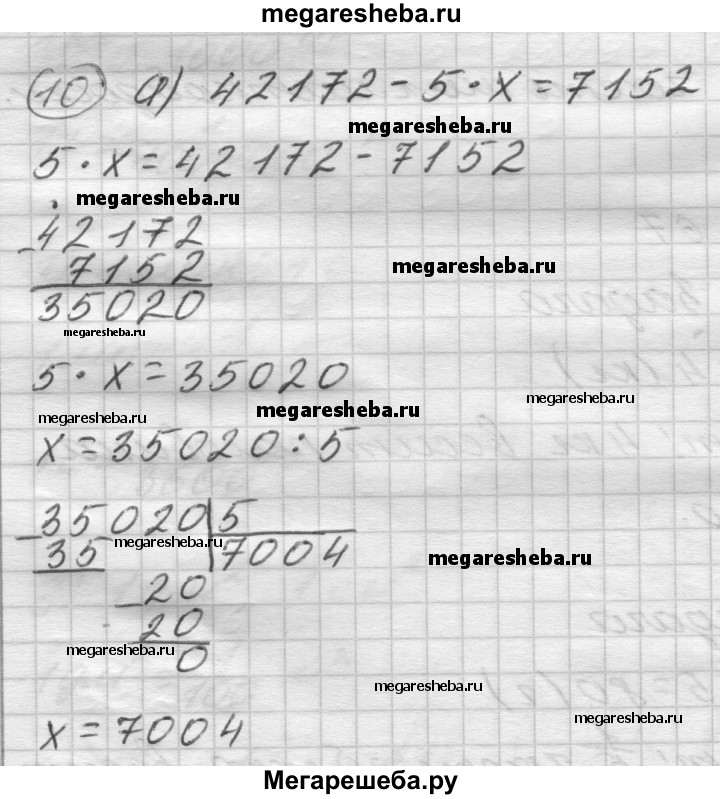 megaresheba.ru
10 а) 42172 - 5 · x = 7152
megaresheba.ru
5 · x = 42172 - 7152
megaresheba.ru
- 42172
7152
megaresheba.ru
35020
megaresheba.ru
5 · x = 35020
megaresheba.ru
megaresheba.ru
megaresheba.ru
x = 35020 : 5
- 35020 | 5
35 7004
megaresheba.ru
megaresheba.ru
- 20
20
megaresheba.ru
0
megaresheba.ru
megaresheba.ru
x = 7004
Мегарешеба.ру